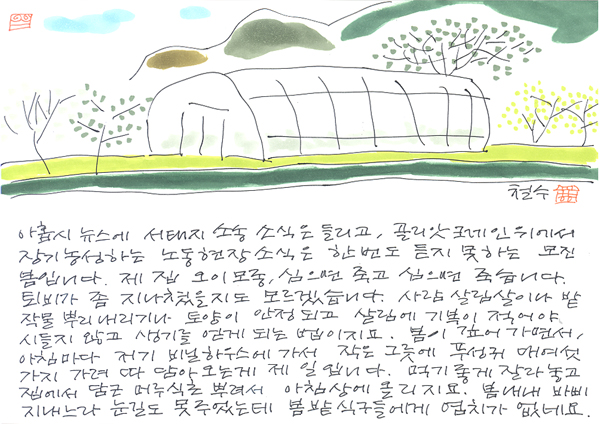 철수
아홉시 뉴스에 서태지 소송 소식은 들리고, 골리앗 크레인 위에서
장기농성하는 노동현장 소식은 한번도 듣지 못하는 모진
봄입니다. 제 집 오이모종, 심으면 죽고 심으면 죽습니다.
퇴비가 좀 지나쳤을지도 모르겠습니다. 사람살림살이나 밭
작물 뿌리내리기나 토양이 안정되고 살림에 기복이 적어야,
시들지 않고 생기를 얻게 되는 법이지요. 봄이 깊어가면서,
아침마다 저기 비닐하우스에 가서 작은 그릇에 푸성귀 대여섯
가지 가려 따 담아오는게 제 일입니다. 먹기좋게 잘라놓고
집에서 담근 머루식초 뿌려서 아침상에 올리지요. 봄내내 바삐
지내느라 눈길도 못주었는데 봄밭 식구들에게 염치가 없네요.